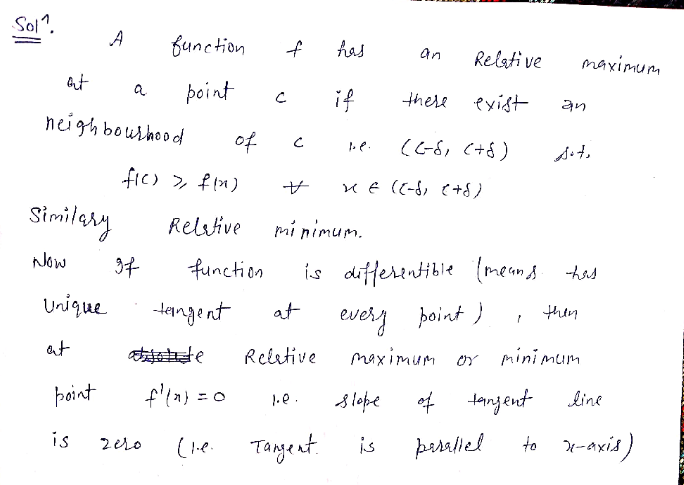 Solⁿ. A function f has an Relative maximum
at a point c if there exist an
neighbourhood of c i.e. (c-δ, c+δ) s.t.
f(c) ⩾ f(x) ∀ x ∈ (c-δ, c+δ)
Similary Relative minimum.
Now If function is differentible (means has
unique tangent at every point) , then
at Relative maximum or minimum
point f'(x) = 0 i.e. slope of tangent line
is zero (i.e. Tangent is parallel to x-axis)